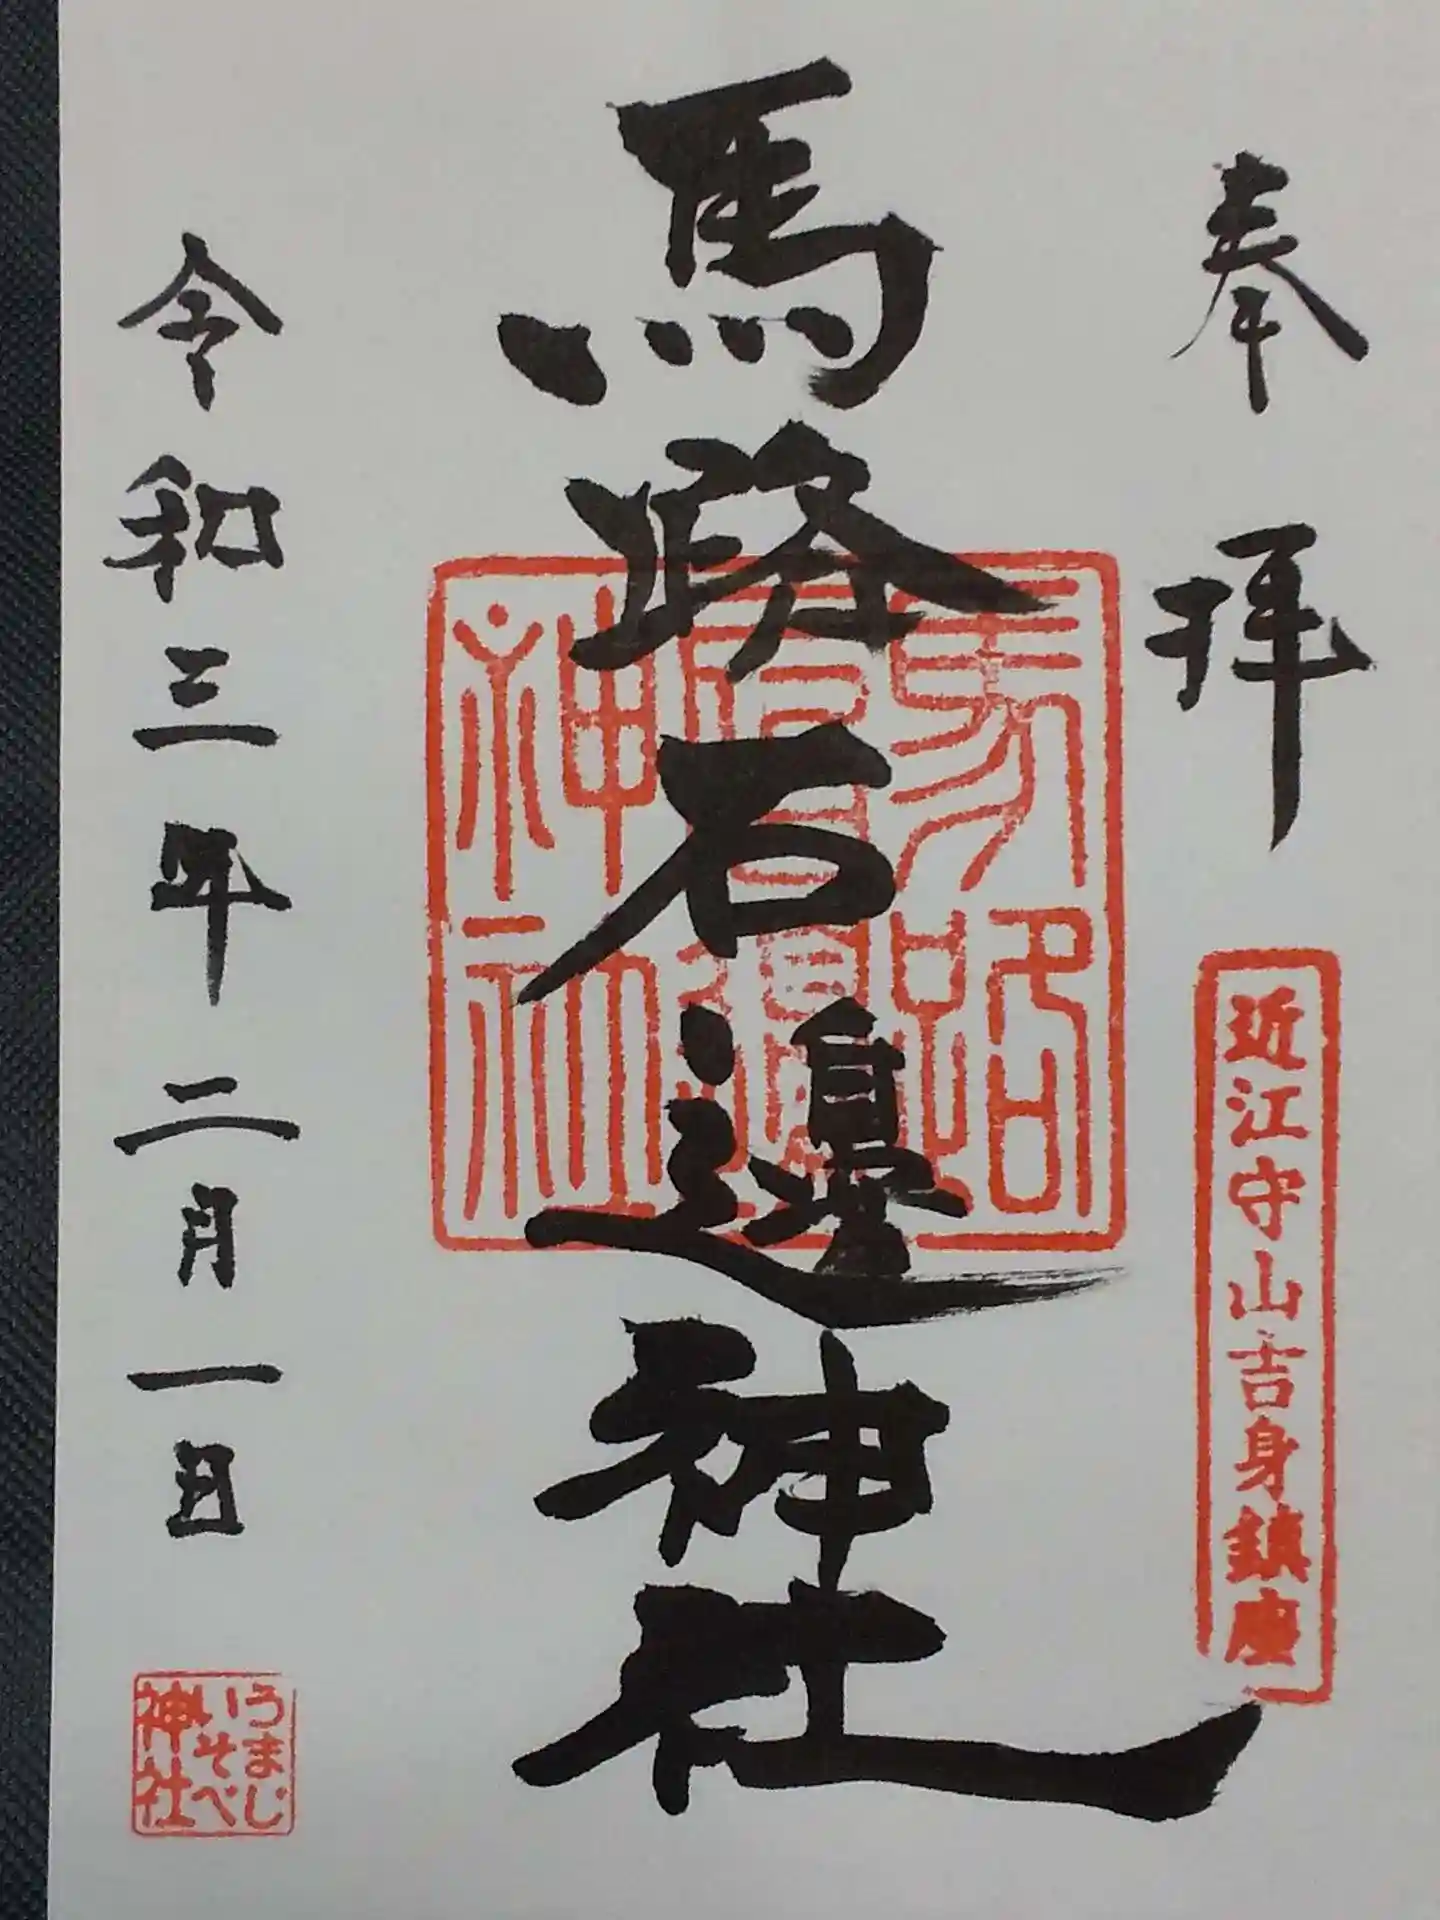 奉拝
近江守山吉身鎮座
馬路石邊神社
馬路
石邊
神社
令和三年二月一日
うまじ
いそべ
神社